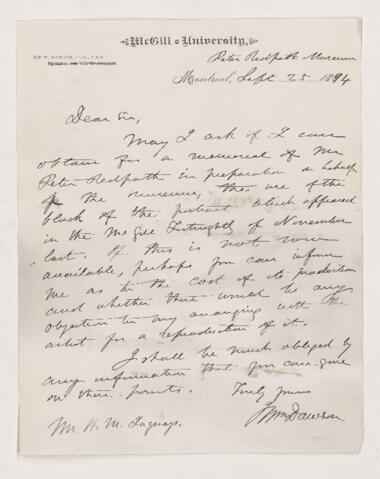 McGill University,
Principal and Vice-Chancellor.
Peter Redpath Museum
Montreal, Sept 25 1894
Dear Sir,
May I ask if I can
obtain for a memorial of Mr
Peter Redpath in preparation on behalf
of the museum, the use of the
block of the portrait which appeared
in the McGill Fortnightly of November
last. If this is not now
available, perhaps you can inform
me as to the cost of its production
and whether there would be any
objection to my arranging with the
artist for a reproduction of it.
I shall be much obliged by
any information that you can give
on these points.
Truly yours
Wm Dawson
Mr H. M.